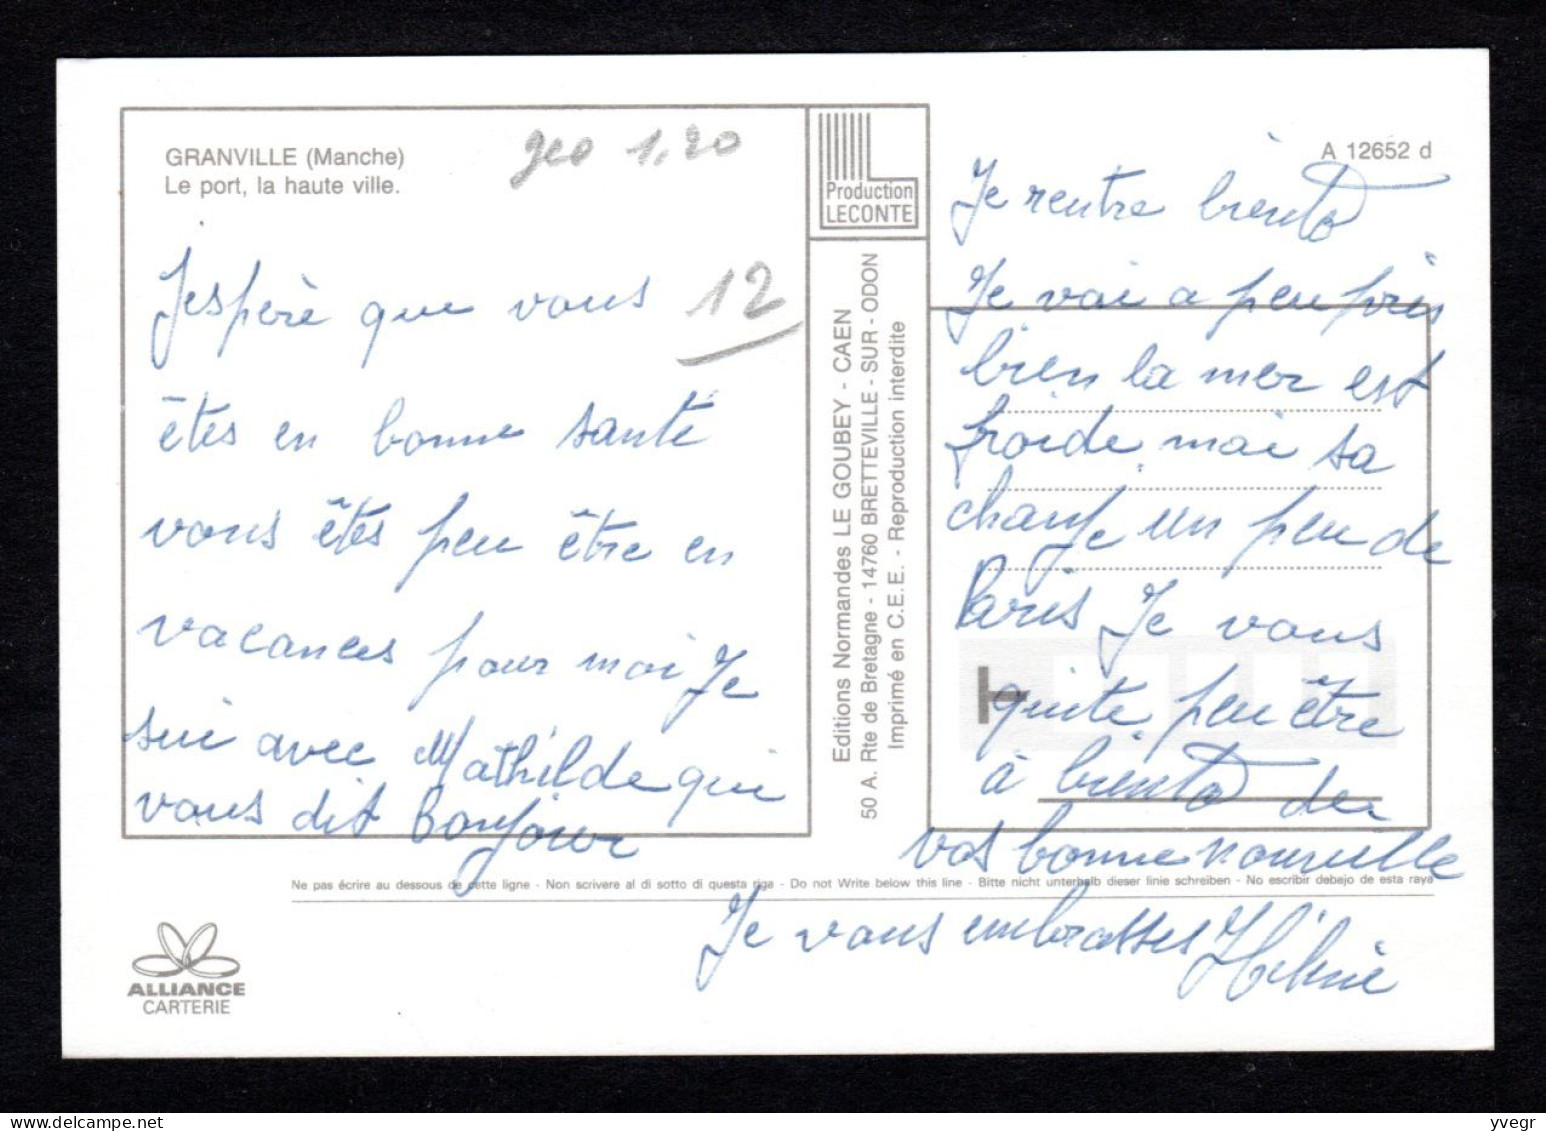 GRANVILLE (Manche)
Le port, la haute ville.
geo 1,20
12
Jespère que vous
êtes en bonne santé
vous êtes peu être en
vacances pour moi Je
sui avec Mathilde qui
vous dit Bonjour
Production
LECONTE
Editions Normandes LE GOUBEY - CAEN
50 A. Rte de Bretagne - 14760 BRETTEVILLE - SUR - ODON
Imprimé en C.E.E. - Reproduction interdite
A 12652 d
Je rentre biento
Je vai a peu près
bien la mer est
froide mai sa
chanje un peu de
Paris Je vous
quite peu être
à biento de
vos bonne nouvelle
Ne pas écrire au dessous de cette ligne - Non scrivere al di sotto di questa riga - Do not Write below this line - Bitte nicht unterhalb dieser linie schreiben - No escribir debajo de esta raya
Je vous embrasses Hélène
ALLIANCE
CARTERIE
yvegr